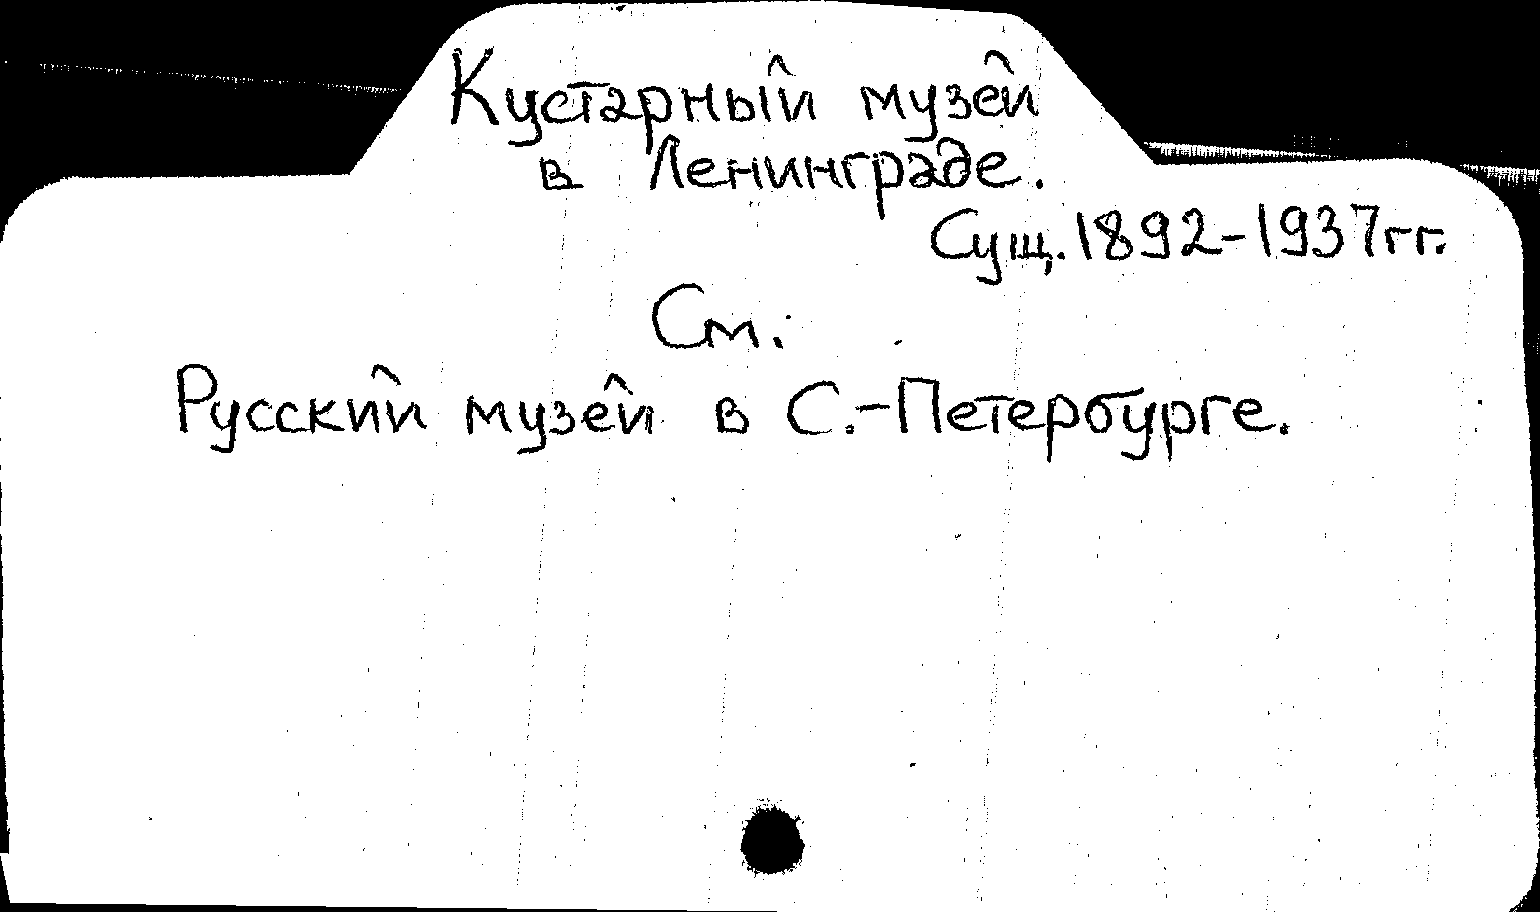 Кустарный музей
в Ленинграде.
Сущ. 1892-1937гг.
См.
Русский музей в С.-Петербурге.